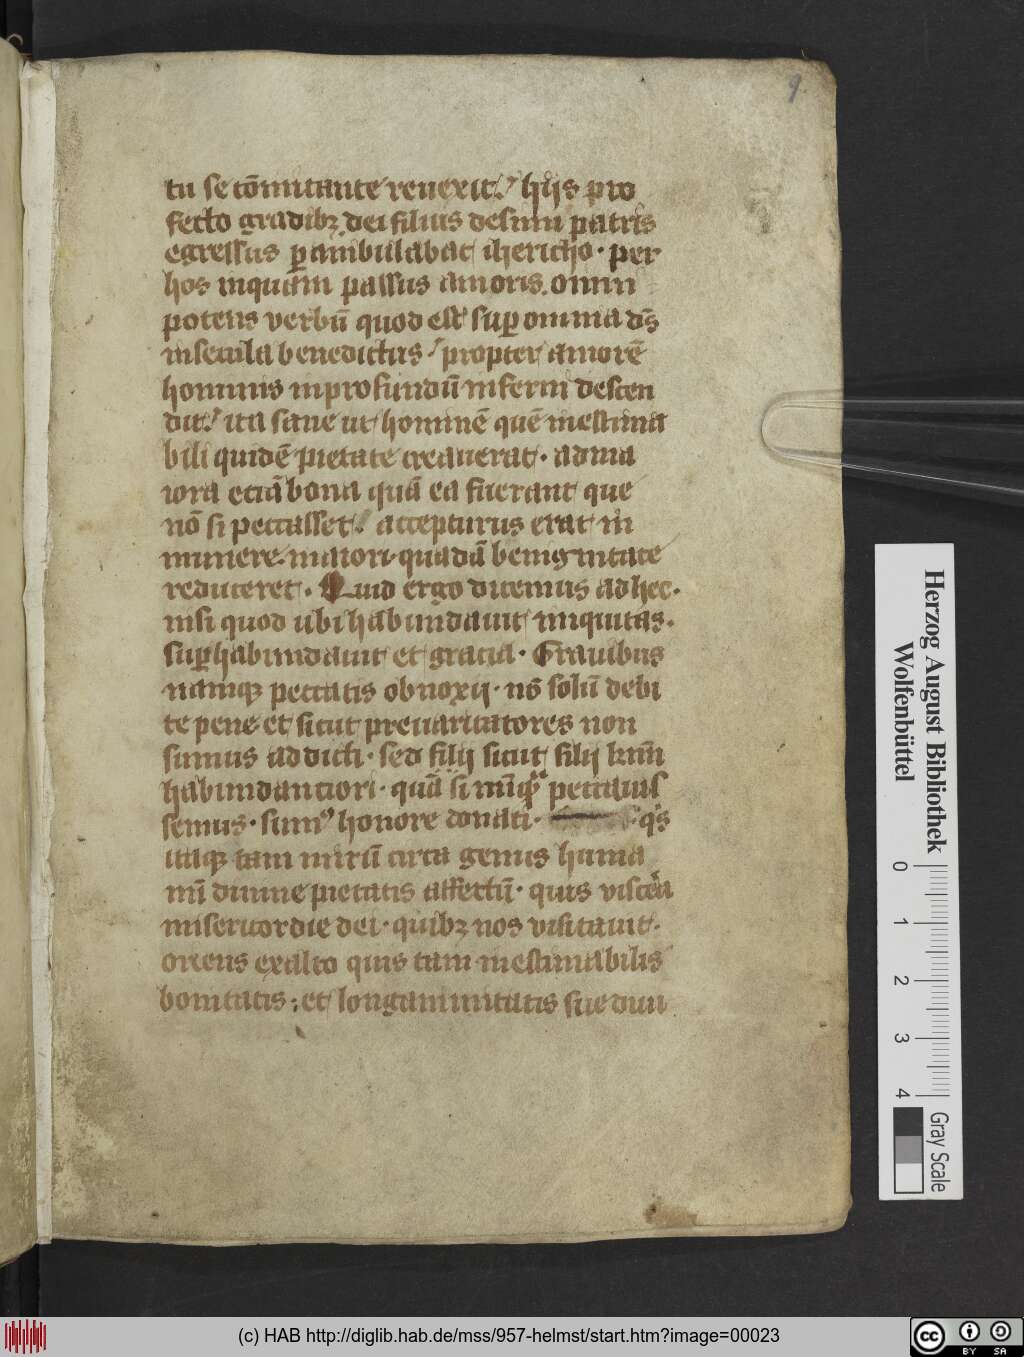 9
tu se cōmitante reuexit. hijs pro
fecto gradibꝫ dei filius de sinu patris
egressus ꝑambulabat ihericho · per
hos inquam passus amoris. omni
potens verbū quod est suꝑ omnia dn̄s
in secula benedictus / propter amorē
hominis in profundū inferni descen
dit. ita sane ut hominē quē inestima
bili quidē pietate creauerat · ad ma
iora etiā bona quā ea fuerant que
nō si peccasset / accepturus erat in
munere. maiori quadā benignitate
reduceret · Quid ergo dicemus ad hec ·
nisi quod ubi habundauit iniquitas ·
suꝑhabundauit et gracia · Grauibus
namqꝫ peccatis obnoxij · nō solū debi
te pene et sicut preuaricatores non
sumus addicti · sed filij sicut filij
habundanciori · quā si peccauis
semus · sumꝰ honore donati · qⁱs
itaqꝫ tam mirū circa genus huma
nū diuine pietatis affectū · quis viscera
misericordie dei · quibꝫ nos visitauit ·
oriens ex alto quis tam inestimabilis
bonitatis · et longanimitatis sue diui
Herzog August Bibliothek
Wolfenbüttel
0 1 2 3 4
Gray Scale
(c) HAB http://diglib.hab.de/mss/957-helmst/start.htm?image=00023
cc BY SA